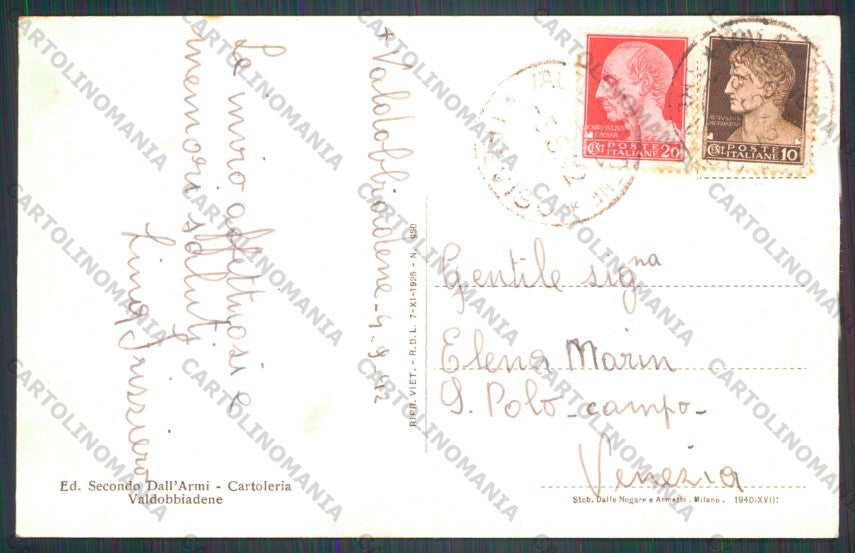 Le invio affettuosi e
memori saluti
Lina
* Valdobbiadene - 4.9.42
RIPR. VIET. - R.D.L. 7-XI-1925 - N. 1950
CAIVS IVLIVS
CAESAR
CENT POSTE
ITALIANE 20
AVGVSTVS
IMPERATOR
CENT POSTE
ITALIANE 10
Gentile sig.na
Elena Marin
S. Polo - campo -
Venezia
Ed. Secondo Dall'Armi - Cartoleria
Valdobbiadene
Stab. Dalle Nogare e Armetti - Milano - 1940-XVIII
CARTOLINOMANIA